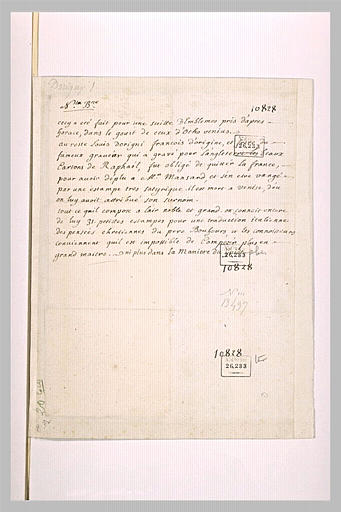 Dorigny
N.ta B.ne
10828
cecy a eté fait pour une suitte d'Emblemes pris d'apres
horace, dans le goust de ceux d'Otho venius.
au reste Louis dorigni francois d'origine, et
fameux graveur qui a gravé pour l'angleterre les beaux
Cartons de Raphaël, fut obligé de quitter la france,
pour avoir deplu a Mr. Mansard et s'en etre vangé
par une estampe tres satyrique. il est mort a venise, d'ou
on luy avoit donné son surnom.
tout ce qu'il compose a l'air noble et grand. on connoit encore
de luy 31. petites estampes pour une traduction italienne
des pensées chretiennes du pere Bouhours, et les connoisseurs
conviennent qu'il est impossible de composer plus en
grand maitre. ni plus dans la Maniere du
26,233
10828
N III
13497
10828
26,233